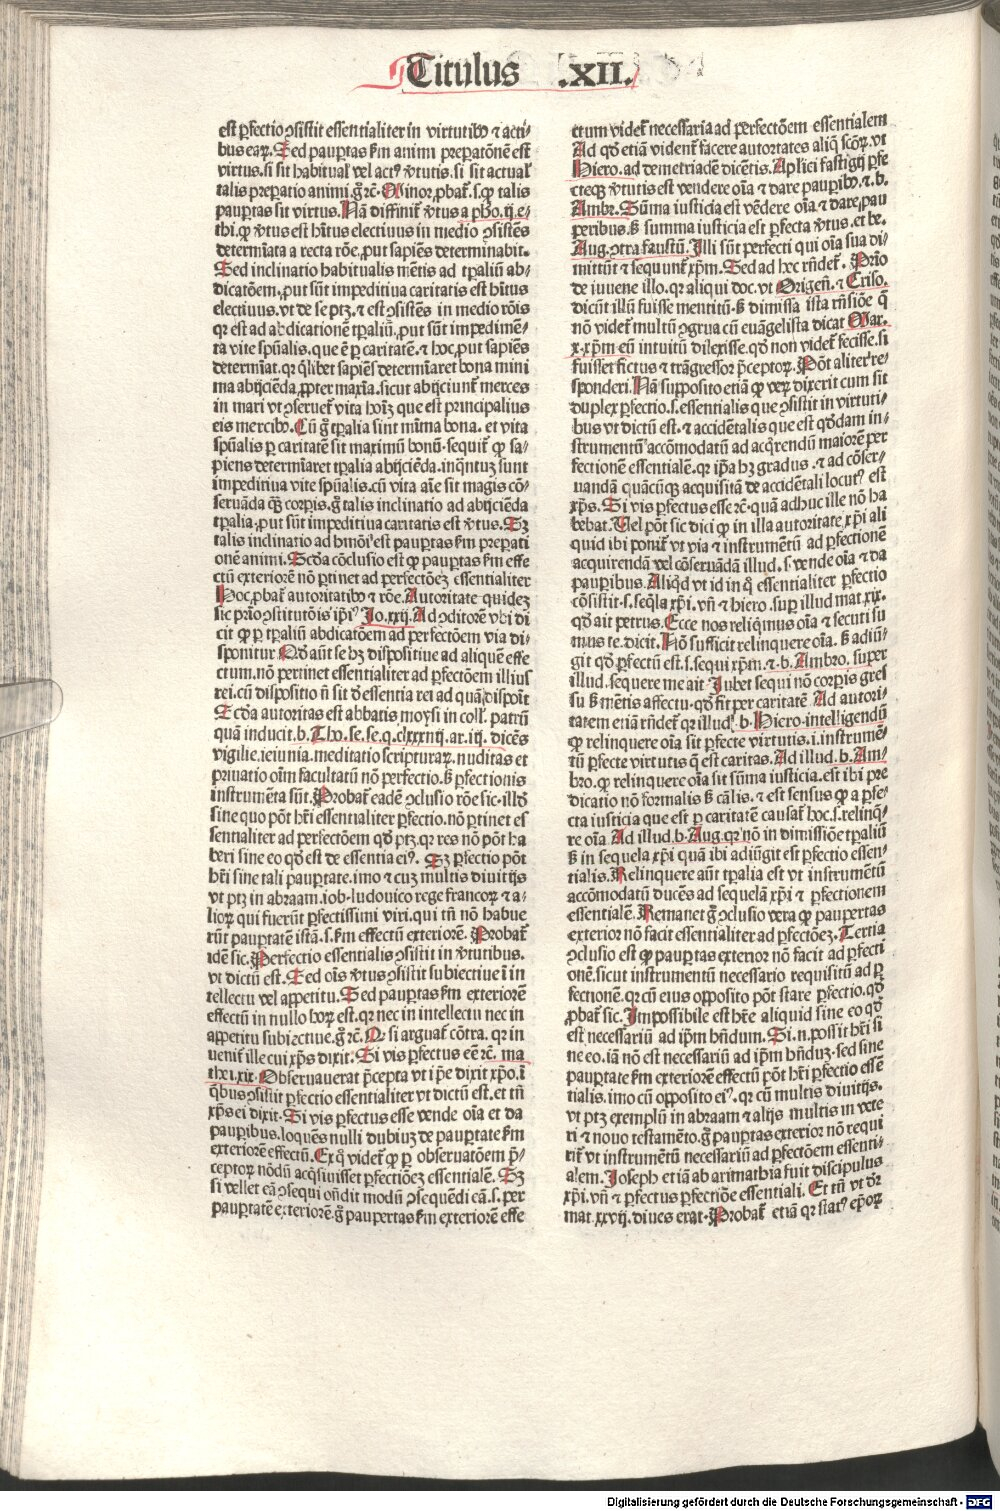 Titulus .XII.
est ꝑfectio ꝯsistit essentialiter in virtutibꝰ ⁊ acti⸗
bus earꝝ. Sed pauꝑtas ẜm animi preparatōnē est
virtus. si sit habitual' vel actꝰ v̓tutis. si sit actual'
talis preparatio animi. g̊ rc̄. Minor ꝓbat̄. s. ꝙ talis
pauꝑtas sit virtus. Nā diffinit̄ v̓tus a pho. ij. e⸗
thi. ꝙ v̓tus est hītus electiuus in medio ꝯsistēs
determīata a recta rōe, ꝓut sapiēs determinabit.
Sed inclinatio habitualis mētis ad tꝑaliū ab⸗
dicatōem, ꝓut sūnt impeditiua caritatis est hītus
electiuus. vt de se ptꝫ. ⁊ est ꝯsistēs in medio rōis
qr est ad abdicationē tꝑaliū, ꝓut sūt impedimē⸗
ta vite spūalis. que ē ꝑ caritatē. ⁊ hoc, ꝓut sapiēs
determīat. qr qͥlibet sapiēs determīaret bona mini
ma abijciēda, ꝓpter maxīa. sicut abijciunt̄ merces
in mari vt ꝯseruet̄ vita hoīs que est principalius
eis mercibꝰ. Cū g̊ tꝑalia sint mīma bona. et vita
spūalis ꝑ caritatē sit maximū bonū. sequit̄ ꝙ sa⸗
piens determīaret tꝑalia abijciēda. inqͣntuꝫ sunt
impeditiua vite spūalis. cū vita aīe sit magis cō⸗
seruāda qͣꝫ corpis. g̊ talis inclinatio ad abijciēda
tꝑalia, ꝓut sūt impeditiua caritatis est v̓tus. Sꝫ
talis inclinatio ad hmōi est pauꝑtas ẜm prepati
onē animi. Scd̓a cōclusio est ꝙ pauꝑtas ẜm effe
ctū exteriorē nō ꝑtinet ad perfectōeꝫ essentialiter
Hoc, ꝓbat̄ autoritatibꝰ ⁊ rōe. Autoritate quideꝫ
sic prīo ꝯstitutōis ip̄iꝰ Jo. xxij. Ad ꝯditorē vbi di
cit ꝙ ꝑ tꝑaliū abdicatōem ad perfectōem via di⸗
sponitur. Qd̓ aūt se hꝫ dispositiue ad aliquē effe
ctum. nō pertinet essentialiter ad ꝑfectōem illius
rei. cū dispositio n̄ sit d̓ essentia rei ad quā disponit
Scd̓a autoritas est abbatis moysi in coll. patrū
quā inducit. b. Tho. se. se. q. clxxxiiij. ar. iij. dicēs
vigilie, ieiunia, meditatio scripturaꝝ. nuditas et
priuatio oīm facultatū nō perfectio. ẜ ꝑfectionis
instrumēta sūt. Probat̄ eadē ꝯclusio rōe sic. illd̓
sine quo pōt hr̄i essentialiter ꝑfectio. nō ꝑtinet es
sentialiter ad perfectōem qd̓ ptꝫ. qr res nō pōt ha
beri sine eo qd̓ est de essentia eiꝰ. Sꝫ ꝑfectio pōt
hr̄i sine tali pauꝑtate. imo ⁊ cuꝫ multis diuitijs
vt ptꝫ in abraam. iob. ludouico rege francoꝝ ⁊ a⸗
lioꝝ qui fuerūt ꝑfectissimi viri. qui tn̄ nō habue
rūt pauꝑtatē istā. s. ẜm effectū exteriorē. Probat̄
idē sic. Perfectio essentialis ꝯsistit in v̓tutibus.
vt dictū est. Sed oīs v̓tus ꝯsistit subiectiue ī in
tellectu vel appetitu. Sed pauꝑtas ẜm exteriorē
effectū in nullo hoꝝ est. qr nec in intellectu nec in
appetitu subiectiue. g̊ rc̄. Qͥ si arguat̄ cōtra. qr in
uenit̄ ille cui xp̄s dixit. Si vis ꝑfectus eē rc̄. ma
thei. xix. Obseruauerat p̄cepta vt ip̄e dixit xp̄o. ī
qͥbus ꝯsistit ꝑfectio essentialiter vt dictū est. et tn̄
xp̄s ei dixit. Si vis ꝑfectus esse vende oīa et da
pauꝑibus. loquēs nulli dubiuꝫ de pauꝑtate ẜm
exteriorē effectū. Ex qͦ videt̄ ꝙ ꝑ obseruatōem p̄⸗
ceptoꝝ nōdū acqͥsiuisset ꝑfectōeꝫ essentialē. Sꝫ
si vellet eā ꝯsequi oñdit modū ꝯsequēdi eā. s. per
pauꝑtatē exteriorē. g̊ paupertas ẜm exteriorē effe
ctum videt̄ necessaria ad perfectōem essentialem
Ad qd̓ etiā vident̄ facere autoritates aliqͣ scōꝝ. vt
Hiero. ad demetriadē dicētis. Apl'ici fastigij ꝑfe
cteqꝫ v̓tutis est vendere oīa ⁊ dare pauꝑibꝰ. ⁊. b.
Ambr. Sūma iusticia est vēdere oīa ⁊ dare, pau
peribus. ẜ summa iusticia est ꝑfecta v̓tus. et be.
Aug. ꝯtra faustū. Illi sūt perfecti qui oīa sua di⸗
mittūt ⁊ sequunt̄ xp̄m. Sed ad hec rn̄det̄. Prīo
de iuuene illo. qr aliqui doc. vt Origeñ. ⁊ Criso.
dicūt illū fuisse mentitū. ẜ dimissa ista rn̄siōe q̄
nō videt̄ multū ꝯgrua cū euāgelista dicat Mar.
x. xp̄m eū intuitū dilexisse. qd̓ non videt̄ fecisse. si
fuisset fictus ⁊ trāsgressor p̄ceptoꝝ. Pōt aliter re⸗
sponderi. Nā supposito etiā ꝙ veꝝ dixerit cum sit
duplex ꝑfectio. s. essentialis que ꝯsistit in virtuti⸗
bus vt dictū est. ⁊ accidētalis que est qd̓dam in⸗
strumentū accōmodatū ad acqͥrendū maiorē per
fectionē essentialē. qr ip̄a hꝫ gradus. ⁊ ad cōser⸗
uandā quācūqꝫ acquisitā de accidētali locutꝰ est
xp̄s. Si vis perfectus esse rc̄. quā adhuc ille nō ha
bebat. Uel pōt sic dici ꝙ in illa autoritate xp̄i ali
quid ibi ponit̄ vt via ⁊ instrumētū ad ꝑfectionē
acquirendā vel cōseruāndā illud. s. vende oīa ⁊ da
pauꝑibus. Aliqͥd vt id in qͦ essentialiter ꝑfectio
cōsistit. s. seqͣla xp̄i. vñ ⁊ hiero. suꝑ illud mat. xix.
qd̓ ait petrus. Ecce nos reliqͥmus oīa ⁊ secuti su
mus te. dicit. Nō sufficit relinquere oīa. ẜ adiū⸗
git qd̓ ꝑfectū est. s. sequi xp̄m. ⁊. b. Ambro. super
illud. sequere me ait. Iubet sequi nō corpis gres
su ẜ mētis affectu. qd̓ fit per caritatē. Ad autori⸗
tatem etiā rn̄det̄ qr illudꝰ. b. Hiero. intelligendū
ꝙ relinquere oīa sit ꝑfecte virtutis. i. instrumē⸗
tū ꝑfecte virtutis q̄ est caritas. Ad illud. b. Am⸗
bro. ꝙ relinquere oīa sit sūma iusticia. est ibi pre
dicatio nō formalis ẜ cālis. ⁊ est sensus ꝙ a ꝑfe⸗
cta iusticia que est ꝑ caritatē causat̄ hoc. s. relinqͦ⸗
re oīa. Ad illud. b. Aug. qr nō in dimissiōe tꝑaliū
ẜ in sequela xp̄i quā ibi adiūgit est ꝑfectio essen⸗
tialis. Relinquere aūt tꝑalia est vt instrumētū
accōmodatū ducēs ad sequelā xp̄i ⁊ ꝑfectionem
essentialē. Remanet g̊ ꝯclusio vera ꝙ paupertas
exterior nō facit essentialiter ad ꝑfectōeꝫ. Tertia
ꝯclusio est ꝙ pauꝑtas exterior nō facit ad ꝑfecti
onē. sicut instrumentū necessario requisitū ad ꝑ
fectionē. qr cū eius opposito pōt stare ꝑfectio. qd̓
ꝓbat̄ sic. Impossibile est hr̄e aliquid sine eo qd̓
est necessariū ad ip̄m hn̄dum. Si. n. possit hr̄i si
ne eo. iā nō est necessariū ad ip̄m hn̄duꝫ. sed sine
pauꝑtate ẜm exteriorē effectū pōt hr̄i ꝑfectio essē
tialis. imo cū opposito eiꝰ. qr cū multis diuitijs.
vt ptꝫ exemplū in abraam ⁊ alijs multis in vete
ri ⁊ nouo testamēto. g̊ pauꝑtas exterior nō requi
rit̄ vt instrumētū necessariū ad ꝑfectōem essenti⸗
alem. Joseph etiā ab arimathia fuit discipulus
xp̄i. vñ ⁊ ꝑfectus ꝑfectiōe essentiali. Et tn̄ vt dr̄
mat. xxvij. diues erat. Probat̄ etiā qr statꝰ ep̄oꝝ
Digitalisierung gefördert durch die Deutsche Forschungsgemeinschaft - DFG